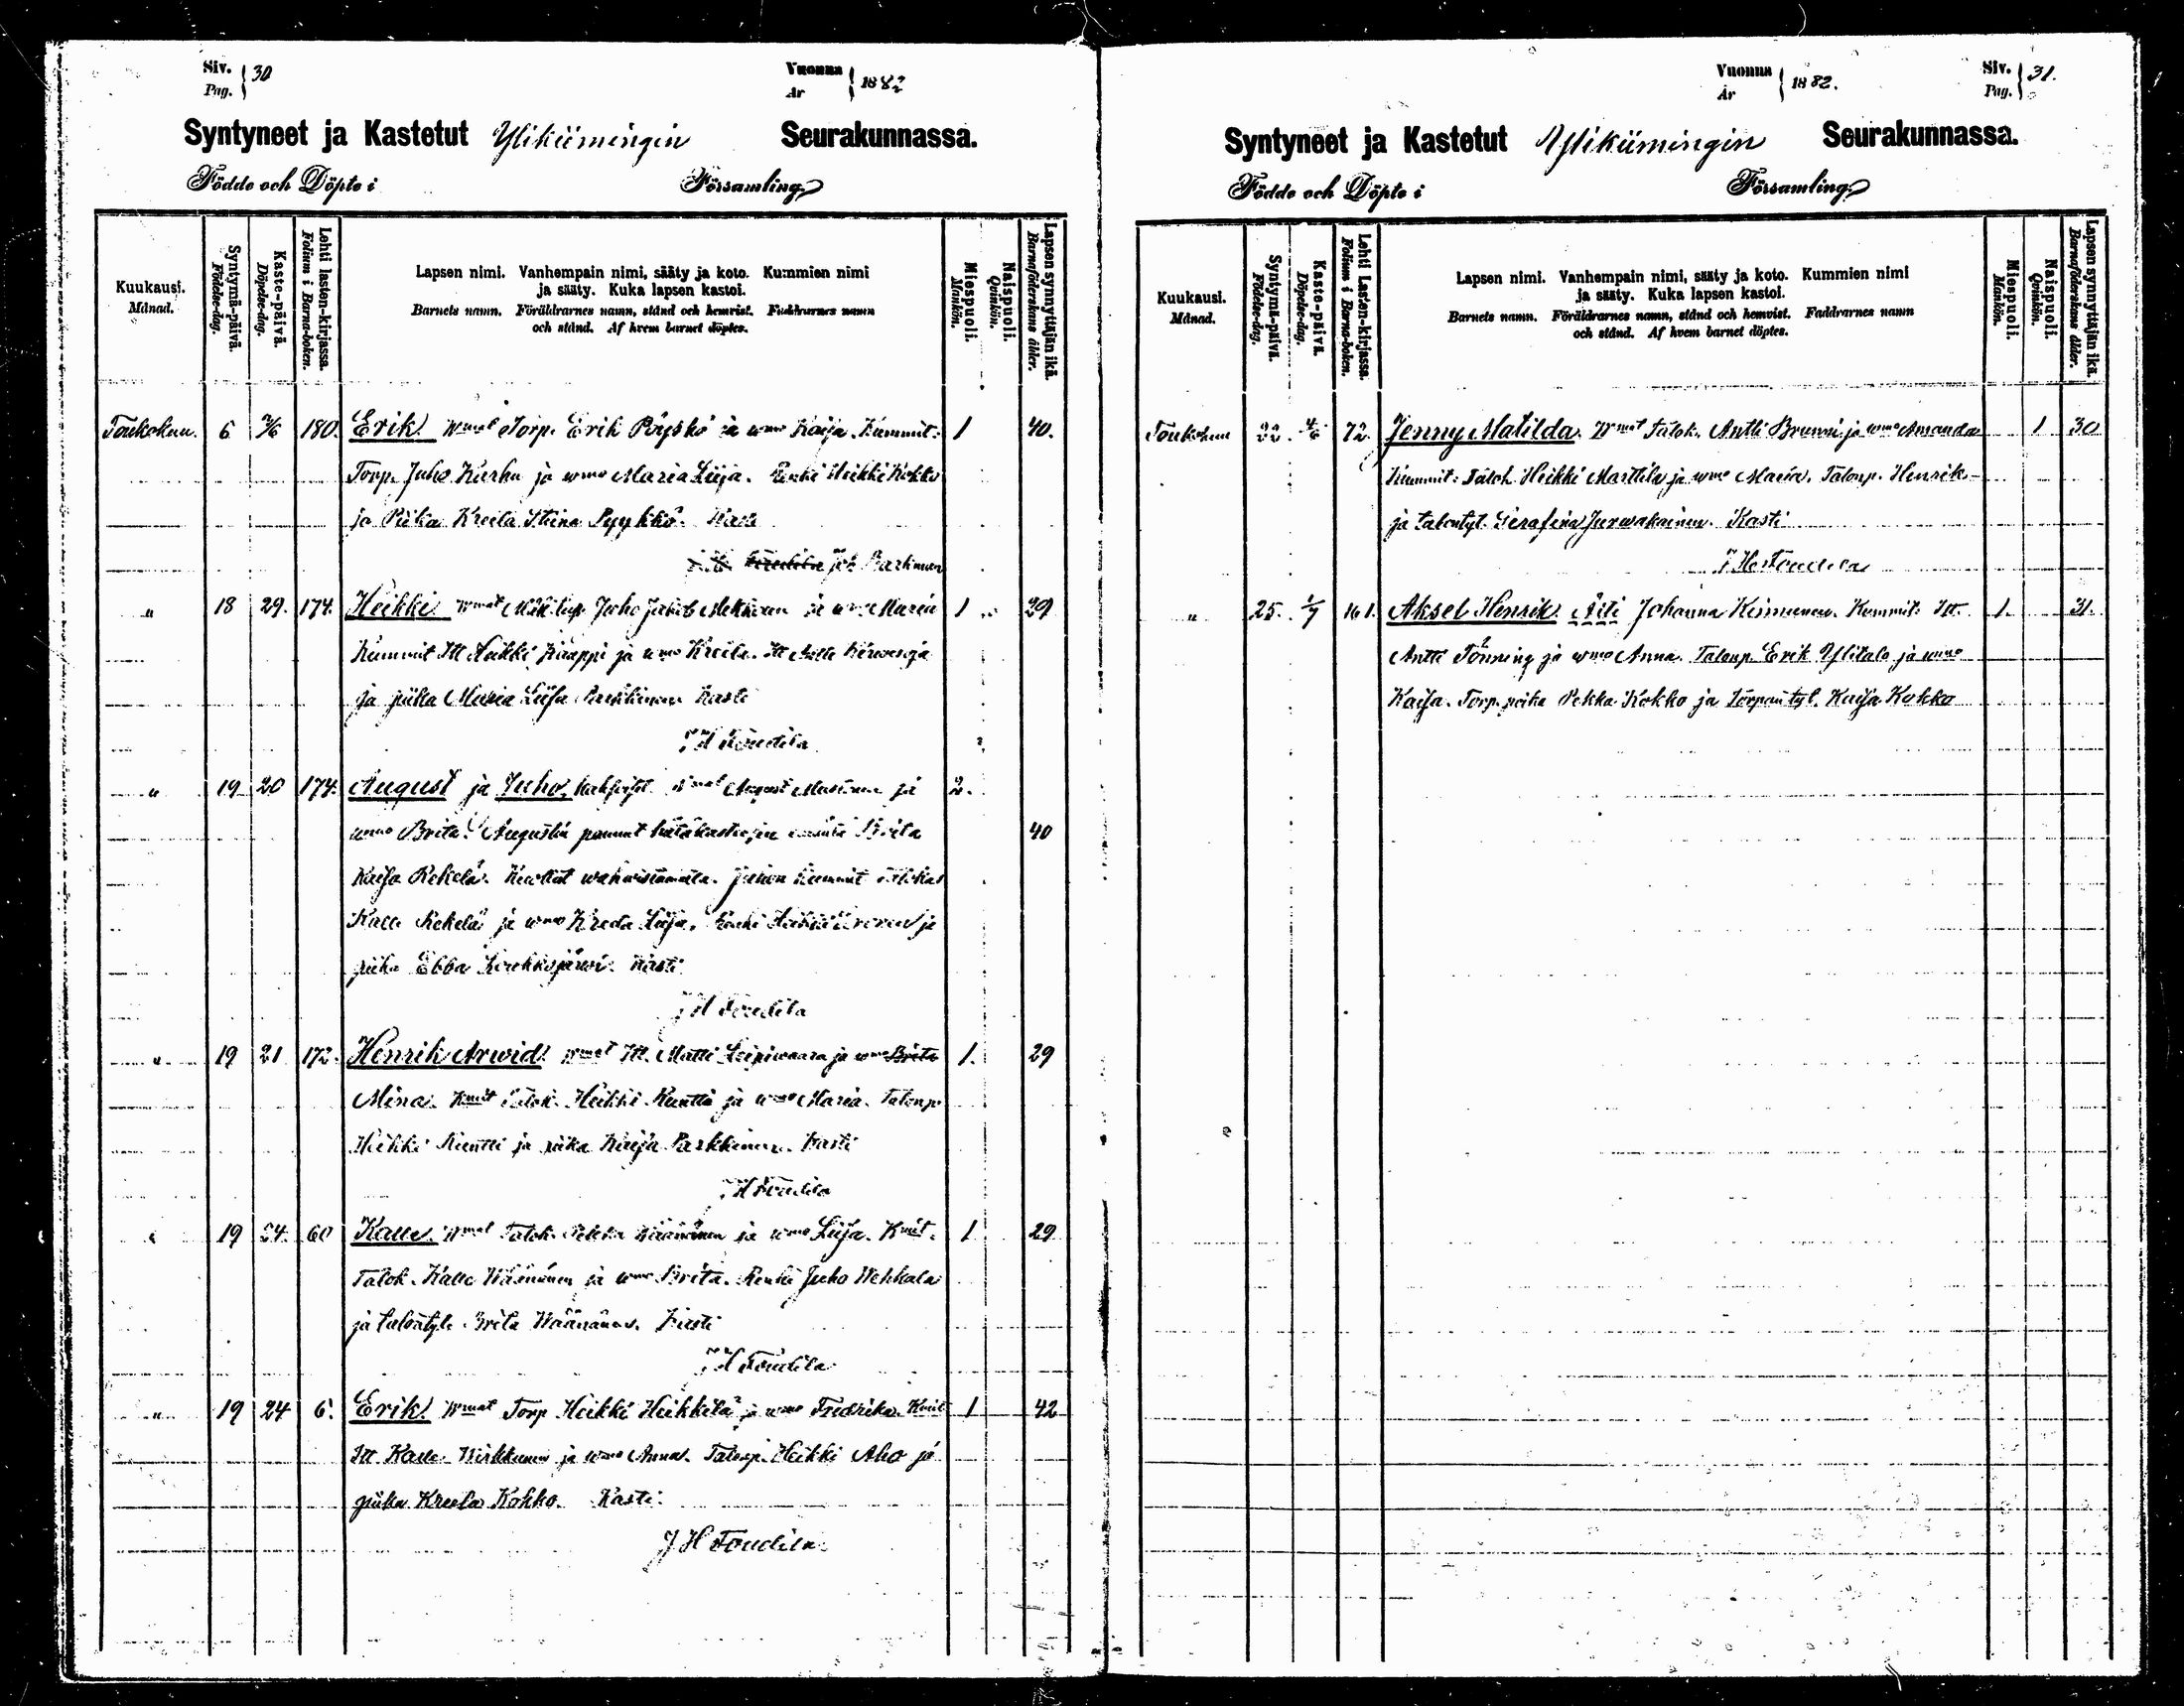 Siv. Pag. 30
Vuonna År 1882
Syntyneet ja Kastetut Ylikiimingin Seurakunnassa.
Födde och Döpte i Församling
Kuukausi. Månad.
Syntymä-päivä. Födelse-dag.
Kaste-päivä. Döpelse-dag.
Lehti lasten-kirjassa. Folium i Barna-boken.
Lapsen nimi. Vanhempain nimi, sääty ja koto. Kummien nimi
ja sääty. Kuka lapsen kastoi.
Barnets namn. Föräldrarnes namn, stånd och hemvist. Faddrarnes namn
och stånd. Af hvem barnet döptes.
Miespuoli. Mankön.
Naispuoli. Qvinkön.
Lapsen synnyttäjän ikä. Barnaföderskans ålder.
Toukokuu. 6 180. Erik. Wmat Torp. Erik Pöyskö ja wmo Kaisa. Kummit: 1 40.
Torp. Juho Karhu ja wmo Maria Liisa. Renki Heikki Kokko
ja Piika Kreeta Stiina Pyykkö. Kasti
Joh Barkman
" 18 29. 174. Heikki Wmat Mäkitup. Juho Jakob ja wmo Maria 1 39
Kummit Itt Heikki Kaappi ja wmo Kreeta. Itt Antti
ja piika Maria Liisa Parkkinen. Kasti
J H Toudila
" 19 20 174. August ja Juho, kaksoiset. Wmat August Mustonen ja 2.
wmo Brita. Augustin pannut hätäkasteesen emäntä Brita 40
Kaisa Rekelä. Kuollut wahwistamata. Juhon kummit talokas
Kalle Rekelä ja wmo Kreeta Liisa. Renki Heikki ja
piika Ebba Kasti
J H Toudila
" 19 21 172. Henrik Arwid. Wmat Itt. Matti Leipiwaara ja wmo Brita 1. 29
Mina. Kmit Talok. Heikki Kuntti ja wmo Maria. Talonp
Heikki Kuntti ja piika Kaisa Parkkinen. Kasti
J H Toudila
" 19 24. 60 Kalle. Wmat Talok. Pekka Väänänen ja wmo Liisa. Kmit. 1 29
Talok. Kalle Wäänänen ja wmo Brita. Renki Juho Wehkala
ja talontyt. Brita Wäänänen. Kasti
J H Toudila
" 19 24 6. Erik. Wmat Torp Heikki Heikkilä ja wmo Fredrika. Kmit 1 42
Itt Kalle ja wmo Anna. Talonp. Heikki Aho ja
piika Kreeta Kokko. Kasti.
J H Toudila.
Vuonna År 1882.
Siv. Pag. 31.
Syntyneet ja Kastetut Ylikiimingin Seurakunnassa.
Födde och Döpte i Församling
Kuukausi. Månad.
Syntymä-päivä. Födelse-dag.
Kaste-päivä. Döpelse-dag.
Lehti Lasten-kirjassa. Folium i Barna-boken.
Lapsen nimi. Vanhempain nimi, sääty ja koto. Kummien nimi
ja sääty. Kuka lapsen kastoi.
Barnets namn. Föräldrarnes namn, stånd och hemvist. Faddrarnes namn
och stånd. Af hvem barnet döptes.
Miespuoli. Mankön.
Naispuoli. Qvinkön.
Lapsen synnyttäjän ikä. Barnaföderskans ålder.
Toukokuu 22. 4/6 72. Jenny Matilda. Wmat Talok. Antti Brunni ja wmo Amanda 1 30
Kummit: Talok. Heikki Marttila ja wmo Maria. Talonp. Henrik
ja talontyt. Serafina Jurwakainen. Kasti
J H Toudila
" 25. 1/7 161. Aksel Henrik. Äiti Johanna Kinnunen. Kummit: Itt. 1. 31.
Antti Tönning ja wmo Anna. Talonp. Erik Ylitalo ja wmo
Kaisa. Torp. poika Pekka Kokko ja Torpan tyt. Kaisa Kokko